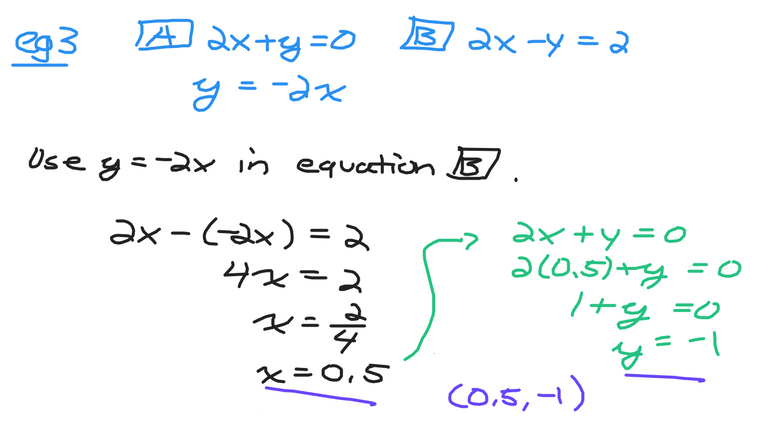 eg3 A 2x+y=0 B 2x-y=2
y=-2x
Use y=-2x in equation B.
2x-(-2x)=2
4x=2
x=2/4
x=0.5
2x+y=0
2(0.5)+y=0
1+y=0
y=-1
(0.5,-1)